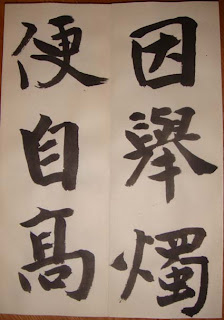 因舉燭
便自高